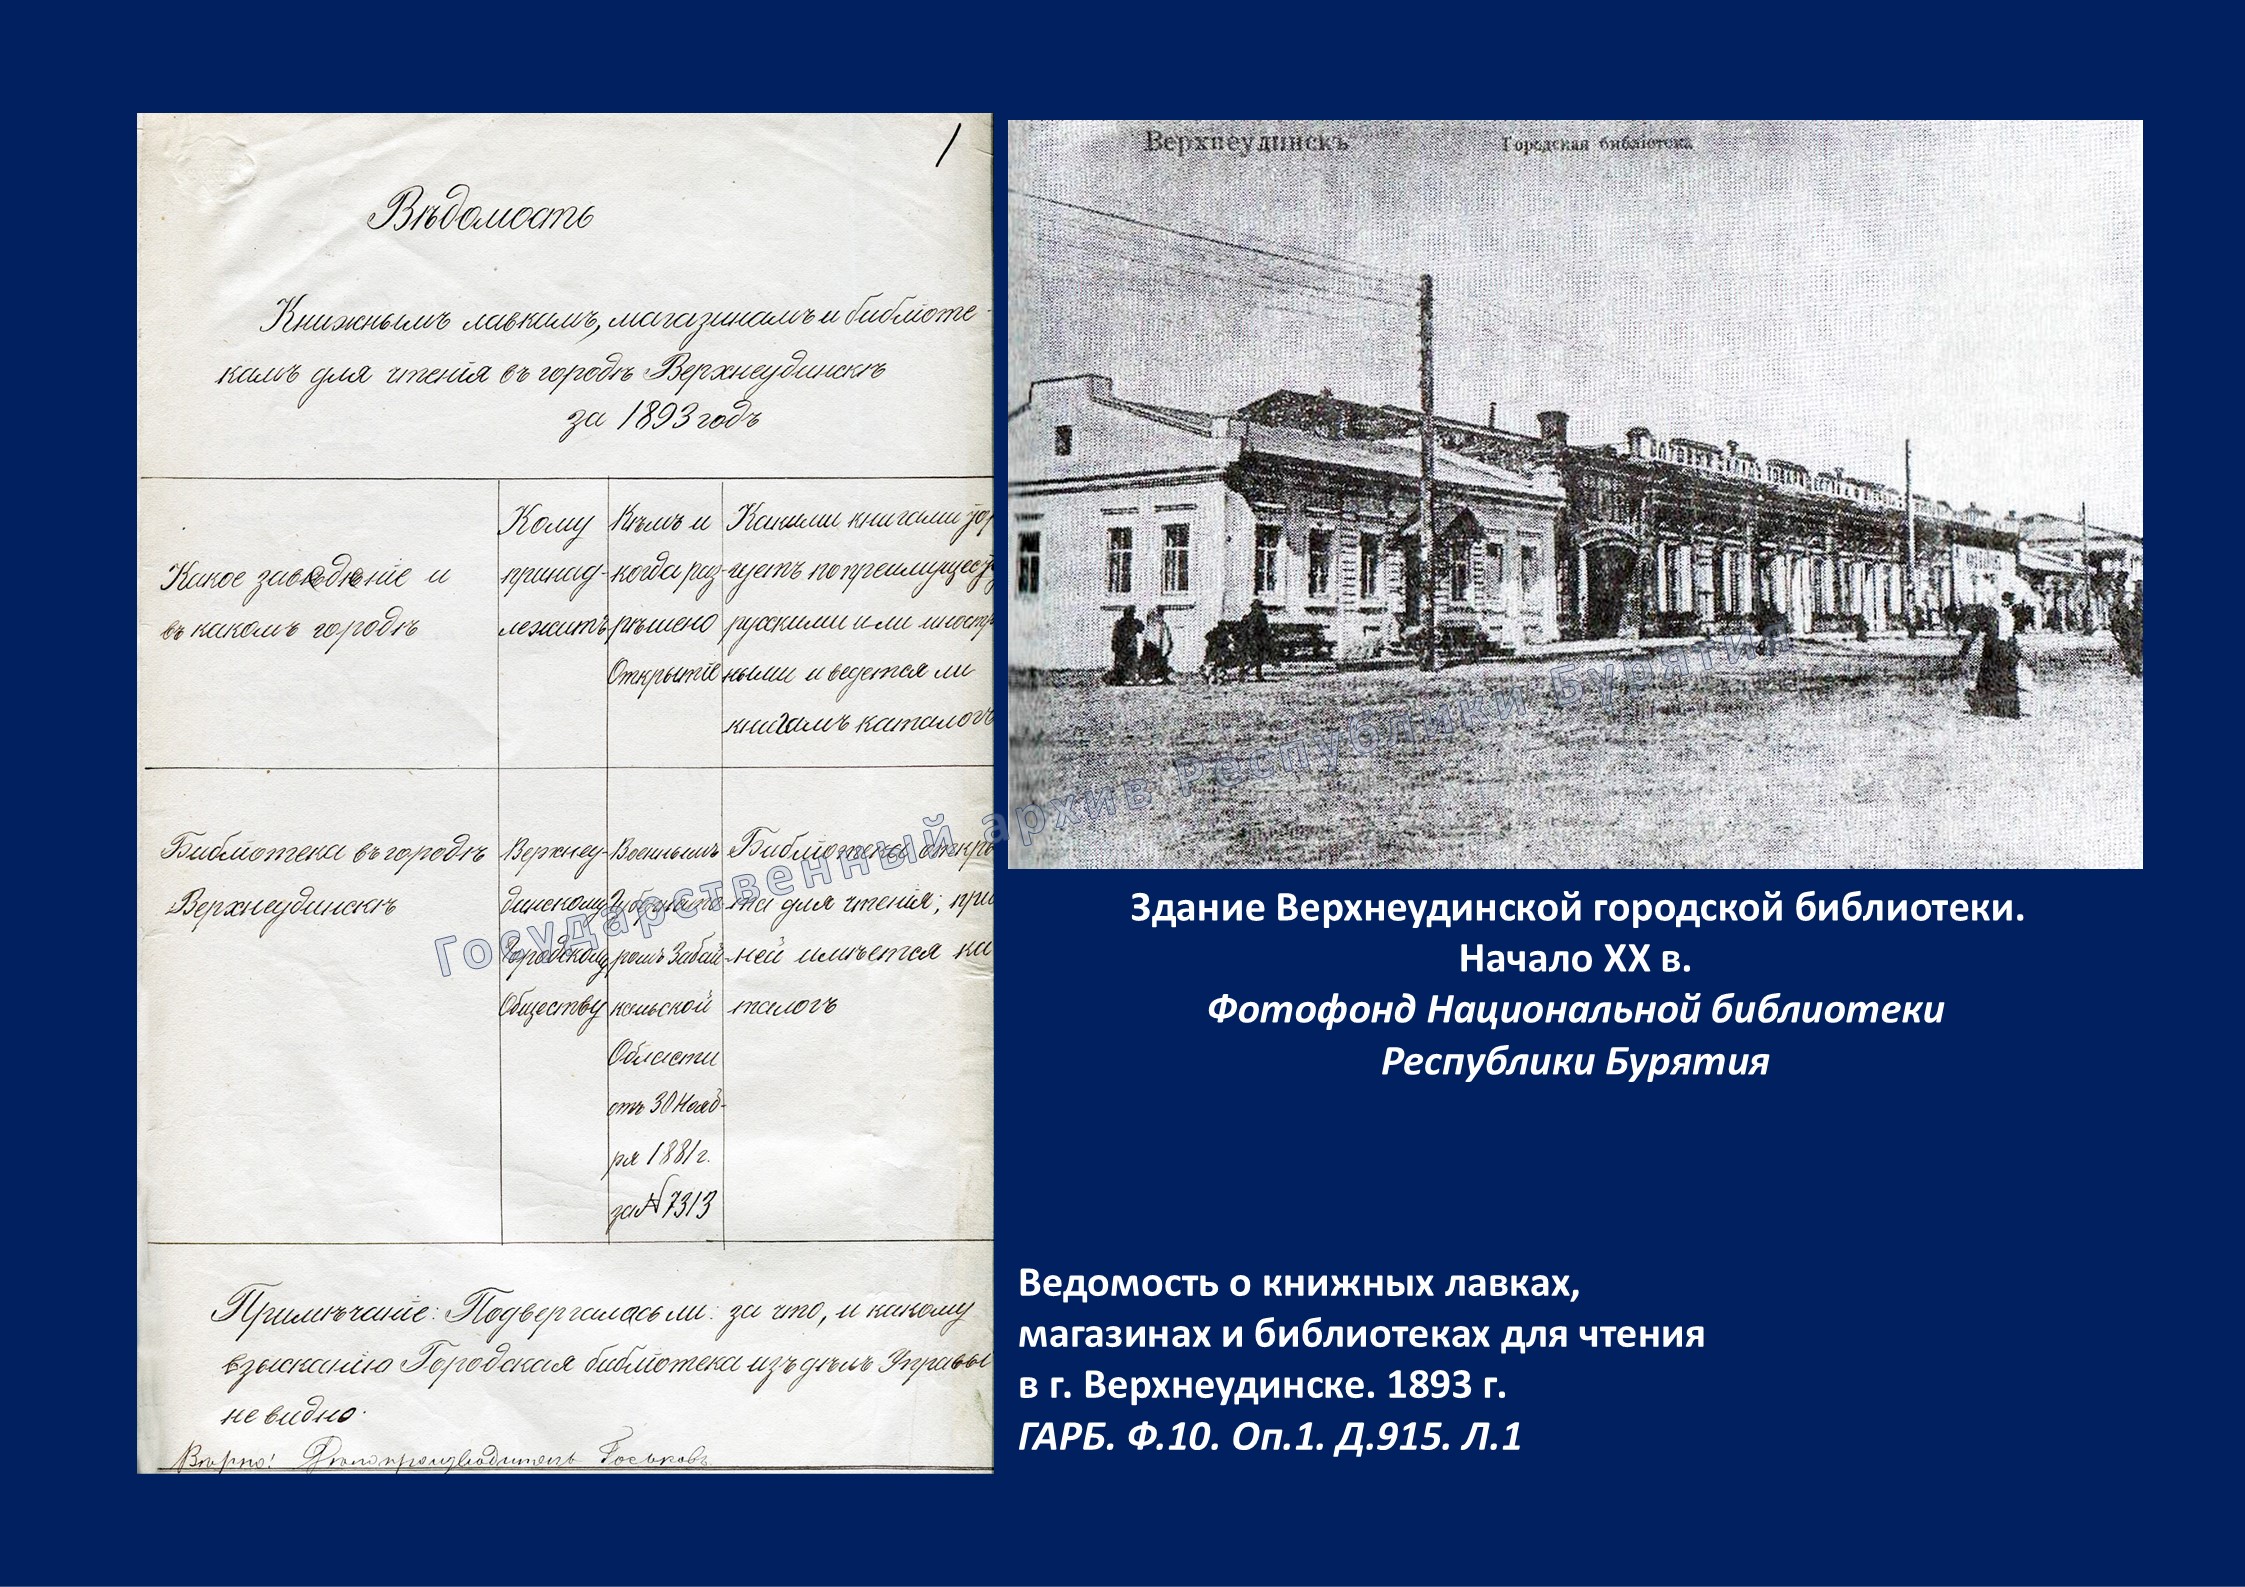 1
Вѣдомость
Книжнымъ лавкамъ, магазинамъ и библіоте-
камъ для чтенія въ городѣ Верхнеудинскѣ
за 1893 годъ
Какое заведеніе и
въ какомъ городѣ
Кому
принад-
лежитъ
Кѣмъ и
когда раз-
рѣшено
Открытіе
Какими книгами тор
гуетъ по преимущест
русскими или иностр
ными и ведется ли
книгамъ каталогъ
Библіотека въ городѣ
Верхнеудинскѣ
Верхнеу-
динскому
Городскому
Обществу
Военнымъ
Губернато
ромъ Забай
кальской
Области
отъ 30 Нояб-
ря 1881 г.
за № 7313
Библіотека откры
та для чтенія; при
ней имѣется ка
талогъ
Примѣчаніе: Подвергалась ли: за что, и какому
взысканію Городская библіотека изъ дѣлъ Управы
не видно.
Вѣрно! Дѣлопроизводитель Госьковъ
Верхнеудинскъ Городская библіотека
Государственный архив Республики Бурятия
Здание Верхнеудинской городской библиотеки.
Начало XX в.
Фотофонд Национальной библиотеки
Республики Бурятия
Ведомость о книжных лавках,
магазинах и библиотеках для чтения
в г. Верхнеудинске. 1893 г.
ГАРБ. Ф.10. Оп.1. Д.915. Л.1